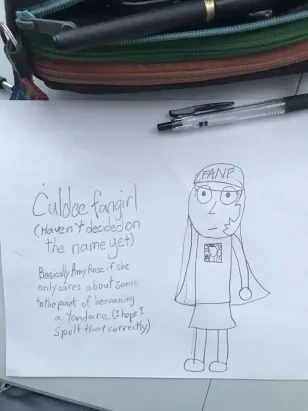 Culdee fangirl
(Haven't decided on
the name yet)
Basically Amy Rose if she
only cares about sonic
to the point of becoming
a Yandare. (I hope I
spelt that correctly)
FANF